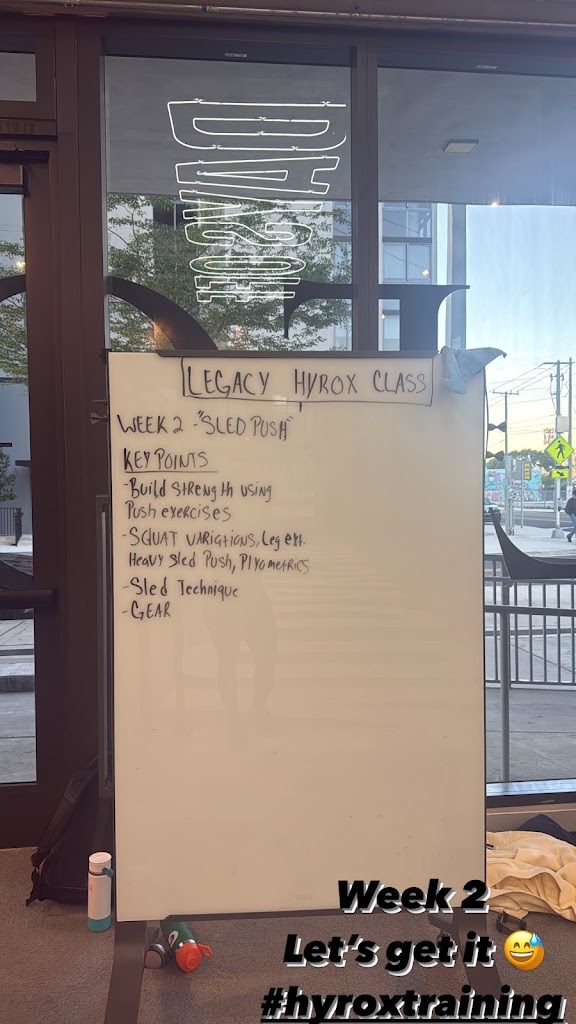 LEGACY HYROX CLASS
WEEK 2 - "SLED PUSH"
KEY POINTS
- Build strength using
Push exercises
- SQUAT VARIATIONS, Leg ext.
Heavy Sled Push, Plyometrics
- Sled Technique
- GEAR
Week 2
Let's get it 😅
#hyroxtraining